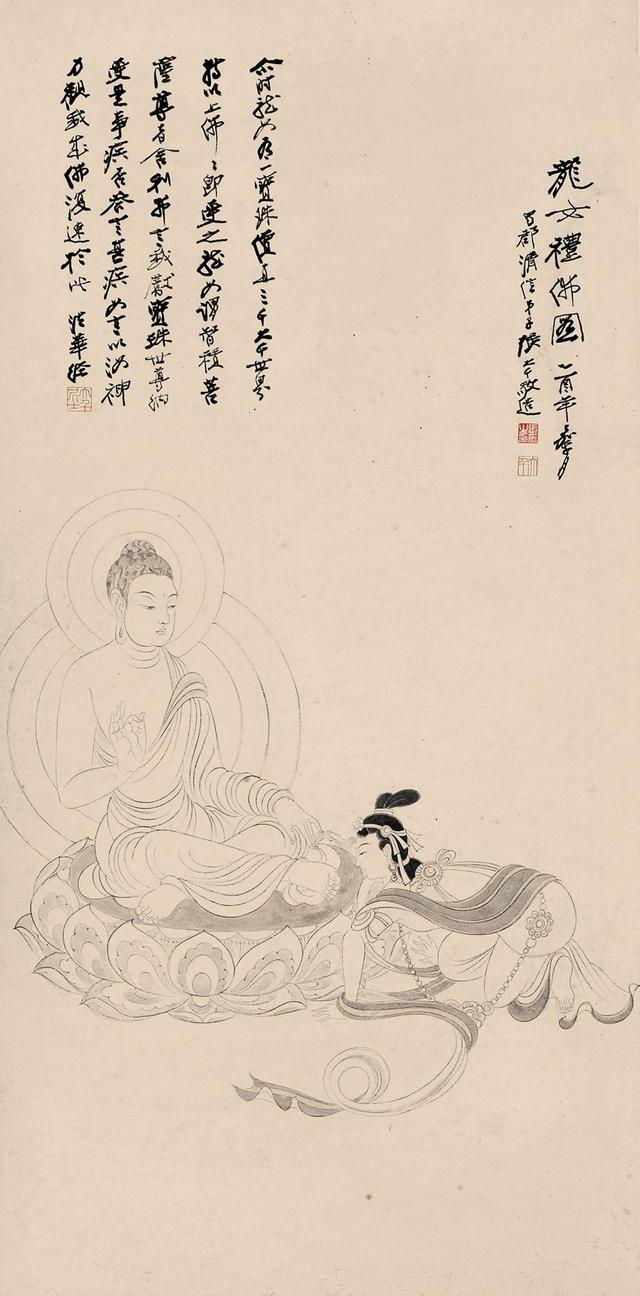 龍女禮佛圖 乙酉年
蜀郡清信弟子張大千敬造
尒時龍女有一寶珠價直三千大千世界
持以上佛〻即受之龍女謂智積菩
薩尊者舍利弗言我獻寶珠世尊納
受是事疾否答言甚疾女言以汝神
力觀我成佛復速於此 法華經